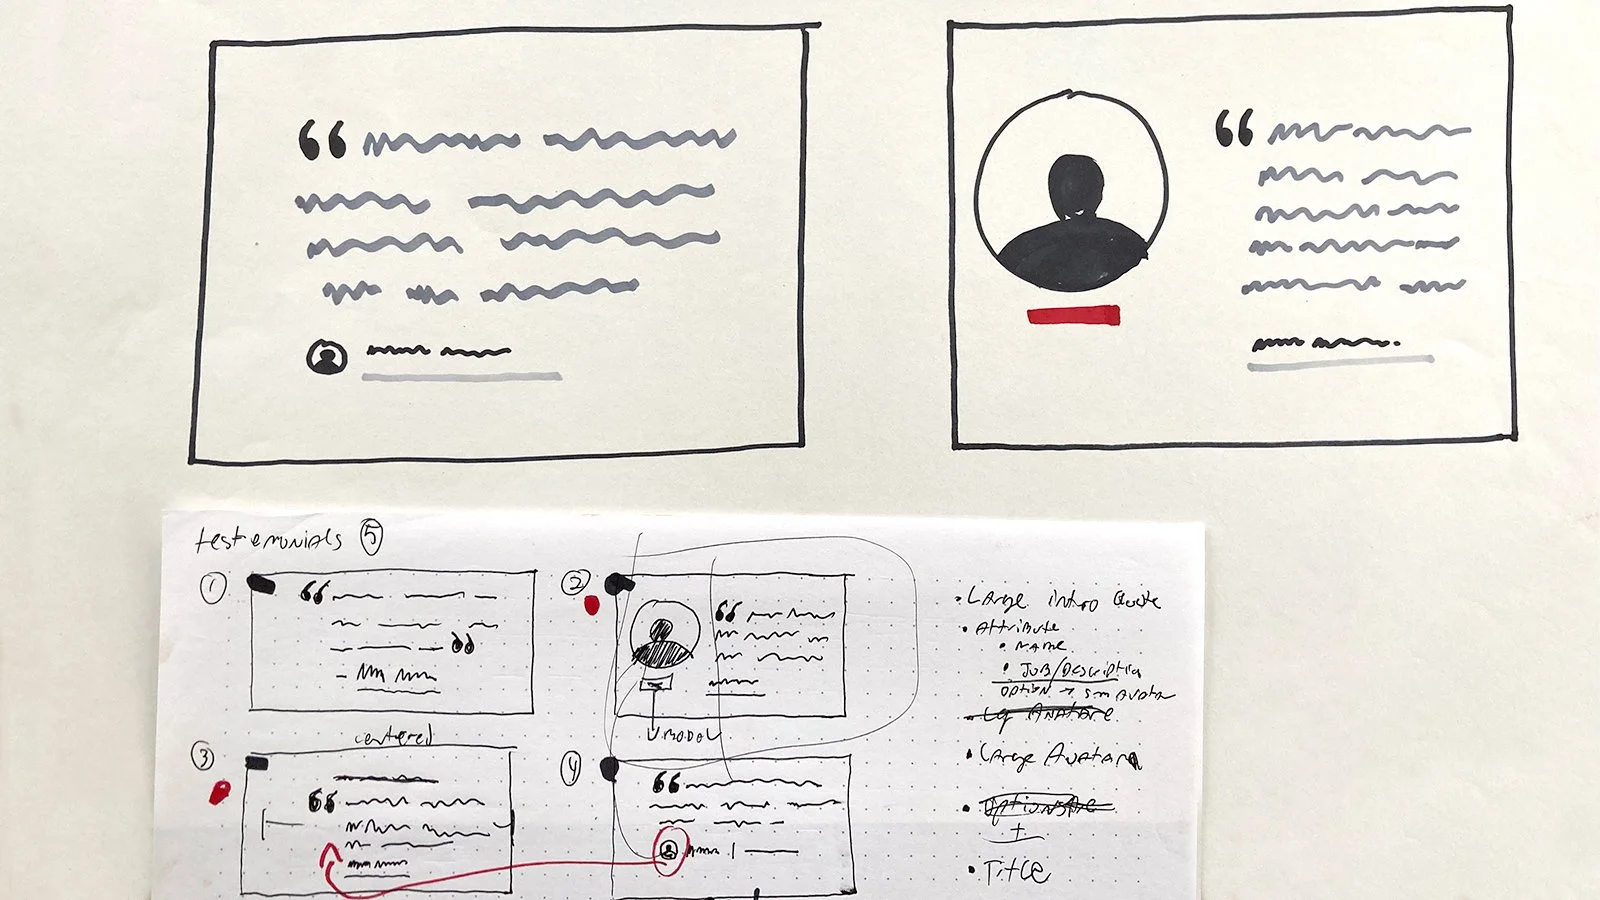 testimonials 5
1
2
centered
MODAL
3
4
• Large intro Quote
• Attribute
• NAME
• JOB/Description
option → sm avatar
• Lg Avatar
• Large Avatar
• Options
+
• Title